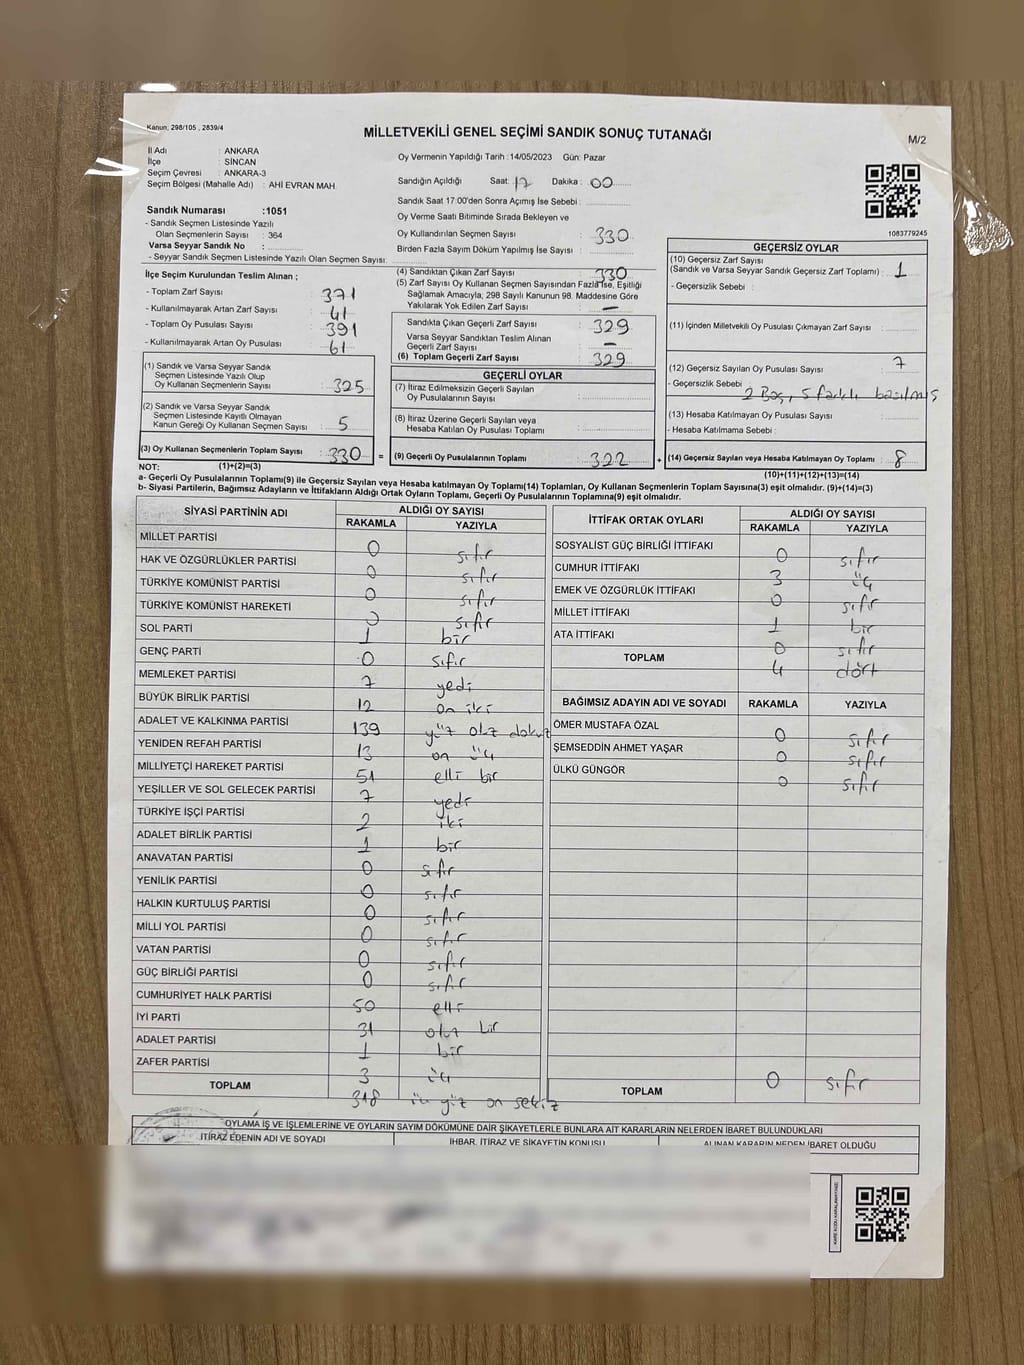 Kanun; 298/105 , 2839/4
MİLLETVEKİLİ GENEL SEÇİMİ SANDIK SONUÇ TUTANAĞI
M/2
İl Adı : ANKARA
İlçe : SİNCAN
Seçim Çevresi : ANKARA-3
Seçim Bölgesi (Mahalle Adı) : AHİ EVRAN MAH.
Sandık Numarası :1051
- Sandık Seçmen Listesinde Yazılı
Olan Seçmenlerin Sayısı : 364
Varsa Seyyar Sandık No :
- Seyyar Sandık Seçmen Listesinde Yazılı Olan Seçmen Sayısı:
Oy Vermenin Yapıldığı Tarih :14/05/2023 Gün: Pazar
Sandığın Açıldığı Saat: 17 Dakika : 00
Sandık Saat 17:00'den Sonra Açımış İse Sebebi :
Oy Verme Saati Bitiminde Sırada Bekleyen ve
Oy Kullandırılan Seçmen Sayısı : 330
Birden Fazla Sayım Döküm Yapılmış İse Sayısı :
1083779245
İlçe Seçim Kurulundan Teslim Alınan ;
- Toplam Zarf Sayısı : 371
- Kullanılmayarak Artan Zarf Sayısı : 41
- Toplam Oy Pusulası Sayısı : 391
- Kullanılmayarak Artan Oy Pusulası : 61
(1) Sandık ve Varsa Seyyar Sandık
Seçmen Listesinde Yazılı Olup
Oy Kullanan Seçmenlerin Sayısı : 325
(2) Sandık ve Varsa Seyyar Sandık
Seçmen Listesinde Kayıtlı Olmayan
Kanun Gereği Oy Kullanan Seçmen Sayısı : 5
(3) Oy Kullanan Seçmenlerin Toplam Sayısı : 330 =
(1)+(2)=(3)
(4) Sandıktan Çıkan Zarf Sayısı : 330
(5) Zarf Sayısı Oy Kullanan Seçmen Sayısından Fazla İse, Eşitliği
Sağlamak Amacıyla; 298 Sayılı Kanunun 98. Maddesine Göre
Yakılarak Yok Edilen Zarf Sayısı : —
Sandıkta Çıkan Geçerli Zarf Sayısı : 329
Varsa Seyyar Sandıktan Teslim Alınan
Geçerli Zarf Sayısı : —
(6) Toplam Geçerli Zarf Sayısı : 329
GEÇERLİ OYLAR
(7) İtiraz Edilmeksizin Geçerli Sayılan
Oy Pusulalarının Sayısı :
(8) İtiraz Üzerine Geçerli Sayılan veya
Hesaba Katılan Oy Pusulası Toplamı :
(9) Geçerli Oy Pusulalarının Toplamı : 322 +
GEÇERSİZ OYLAR
(10) Geçersiz Zarf Sayısı
(Sandık ve Varsa Seyyar Sandık Geçersiz Zarf Toplamı) : 1
- Geçersizlik Sebebi :
(11) İçinden Milletvekili Oy Pusulası Çıkmayan Zarf Sayısı :
(12) Geçersiz Sayılan Oy Pusulası Sayısı : 7
- Geçersizlik Sebebi : 2 Boş, 5 farklı basılmış
(13) Hesaba Katılmayan Oy Pusulası Sayısı :
- Hesaba Katılmama Sebebi :
(14) Geçersiz Sayılan veya Hesaba Katılmayan Oy Toplamı : 8
(10)+(11)+(12)+(13)=(14)
NOT:
a- Geçerli Oy Pusulalarının Toplamı(9) ile Geçersiz Sayılan veya Hesaba katılmayan Oy Toplamı(14) Toplamları, Oy Kullanan Seçmenlerin Toplam Sayısına(3) eşit olmalıdır. (9)+(14)=(3)
b- Siyasi Partilerin, Bağımsız Adayların ve İttifakların Aldığı Ortak Oyların Toplamı, Geçerli Oy Pusulalarının Toplamına(9) eşit olmalıdır.
SİYASİ PARTİNİN ADI ALDIĞI OY SAYISI
RAKAMLA YAZIYLA
MİLLET PARTİSİ 0 sıfır
HAK VE ÖZGÜRLÜKLER PARTİSİ 0 sıfır
TÜRKİYE KOMÜNİST PARTİSİ 0 sıfır
TÜRKİYE KOMÜNİST HAREKETİ 0 sıfır
SOL PARTİ 1 bir
GENÇ PARTİ 0 sıfır
MEMLEKET PARTİSİ 7 yedi
BÜYÜK BİRLİK PARTİSİ 12 on iki
ADALET VE KALKINMA PARTİSİ 139 yüz otuz dokuz
YENİDEN REFAH PARTİSİ 13 on üç
MİLLİYETÇİ HAREKET PARTİSİ 51 elli bir
YEŞİLLER VE SOL GELECEK PARTİSİ 7 yedi
TÜRKİYE İŞÇİ PARTİSİ 2 iki
ADALET BİRLİK PARTİSİ 1 bir
ANAVATAN PARTİSİ 0 sıfır
YENİLİK PARTİSİ 0 sıfır
HALKIN KURTULUŞ PARTİSİ 0 sıfır
MİLLİ YOL PARTİSİ 0 sıfır
VATAN PARTİSİ 0 sıfır
GÜÇ BİRLİĞİ PARTİSİ 0 sıfır
CUMHURİYET HALK PARTİSİ 50 elli
İYİ PARTİ 31 otuz bir
ADALET PARTİSİ 1 bir
ZAFER PARTİSİ 3 üç
TOPLAM 318 üç yüz on sekiz
İTTİFAK ORTAK OYLARI ALDIĞI OY SAYISI
RAKAMLA YAZIYLA
SOSYALİST GÜÇ BİRLİĞİ İTTİFAKI 0 sıfır
CUMHUR İTTİFAKI 3 üç
EMEK VE ÖZGÜRLÜK İTTİFAKI 0 sıfır
MİLLET İTTİFAKI 1 bir
ATA İTTİFAKI 0 sıfır
TOPLAM 4 dört
BAĞIMSIZ ADAYIN ADI VE SOYADI RAKAMLA YAZIYLA
ÖMER MUSTAFA ÖZAL 0 sıfır
ŞEMSEDDİN AHMET YAŞAR 0 sıfır
ÜLKÜ GÜNGÖR 0 sıfır
TOPLAM 0 sıfır
OYLAMA İŞ VE İŞLEMLERİNE VE OYLARIN SAYIM DÖKÜMÜNE DAİR ŞİKAYETLERLE BUNLARA AİT KARARLARIN NELERDEN İBARET BULUNDUKLARI
İTİRAZ EDENİN ADI VE SOYADI İHBAR, İTİRAZ VE ŞİKAYETİN KONUSU ALINAN KARARIN NEDEN İBARET OLDUĞU